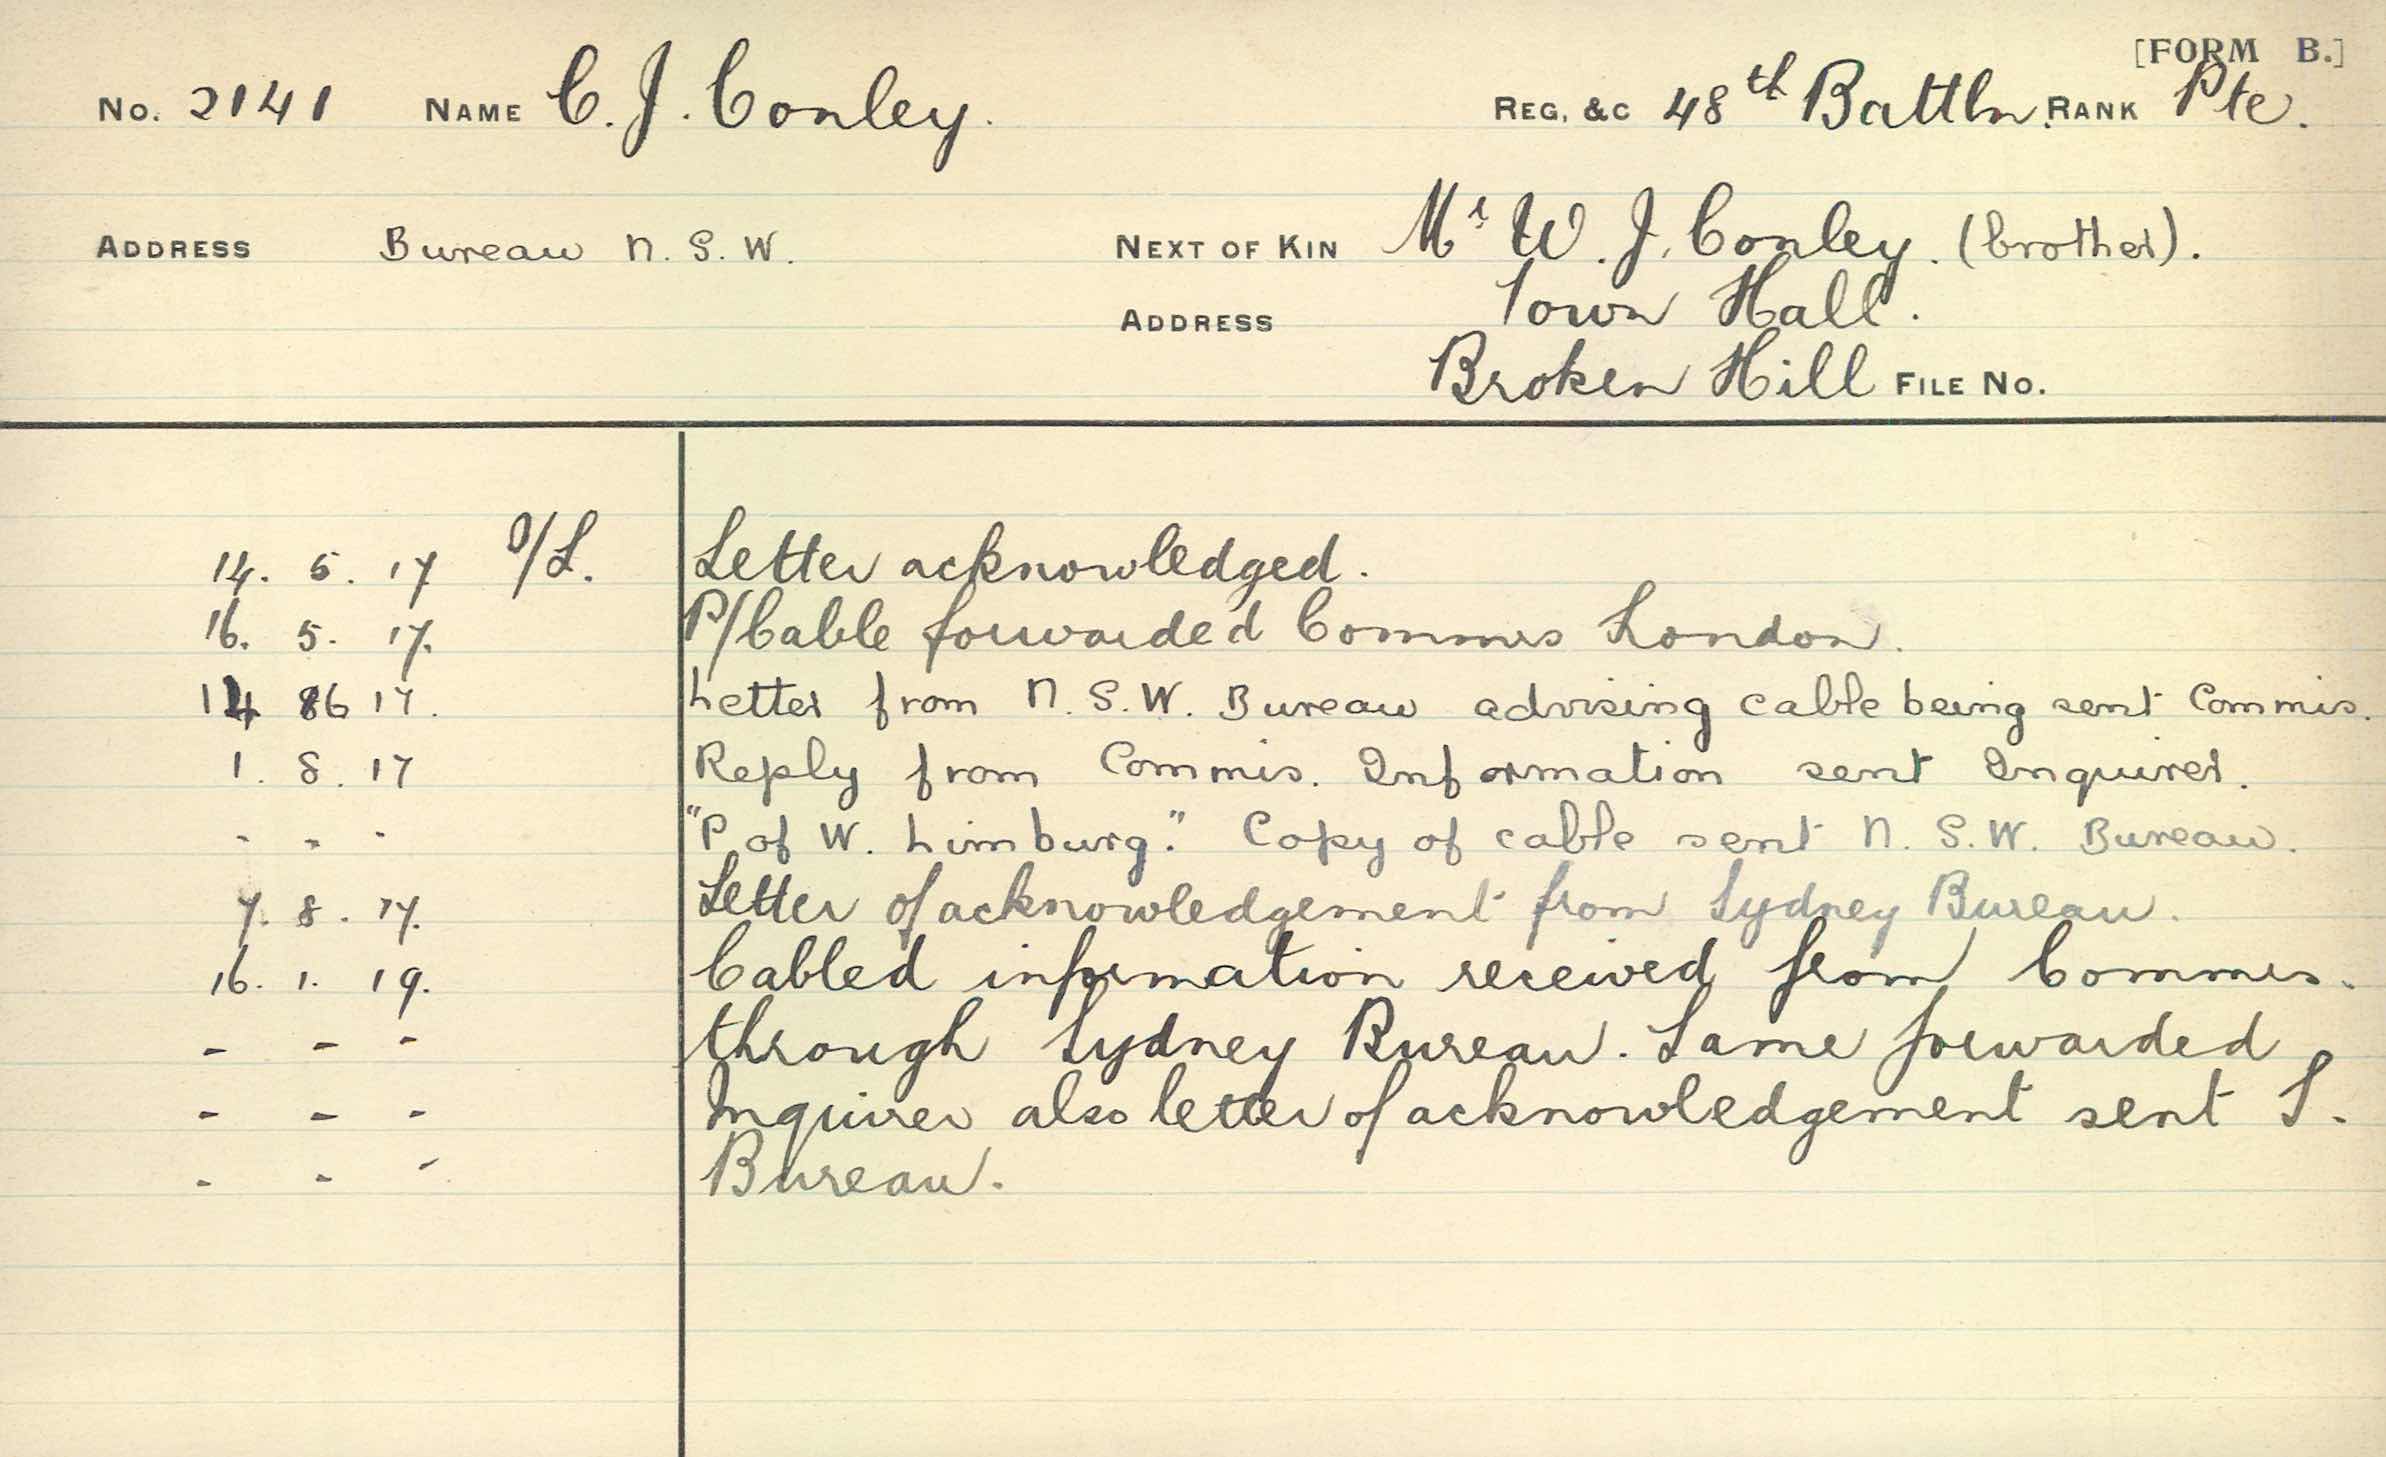 [FORM B.]
No. 2141 NAME C. J. Conley. REG. &C 48th Battln. RANK Pte.
ADDRESS Bureau N. S. W. NEXT OF KIN Mr W. J. Conley. (brother).
ADDRESS Town Hall.
Broken Hill FILE No.
14. 5. 17 O/L. Letter acknowledged.
16. 5. 17. P/Cable forwarded Commis London.
14 6 17. Letter from N. S. W. Bureau advising cable being sent Commis.
1. 8. 17 Reply from Commis. Information sent Inquirer.
- - - "P of W. Limburg." Copy of cable sent N. S. W. Bureau.
7. 8. 17. Letter of acknowledgement from Sydney Bureau.
16. 1. 19. Cabled information received from Commis.
- - - through Sydney Bureau. Same forwarded
- - - Inquirer also letter of acknowledgement sent S.
- - - Bureau.